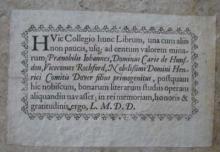 HVic Collegio hunc Librum, una cum aliis
non paucis, usq; ad centum valorem minarum
Prænobilis Iohannes, Dominus Carie de Hunsdon,
Vicecomes Rochford, Nobilissimi Domini Henrici
Comitis Dover filius primogenitus, postquam
hic nobilcum, bonarum literarum studiis operam
aliquandiu navasset, in rei memoriam, honoris &
gratitudinis ergo, L. M. D. D.